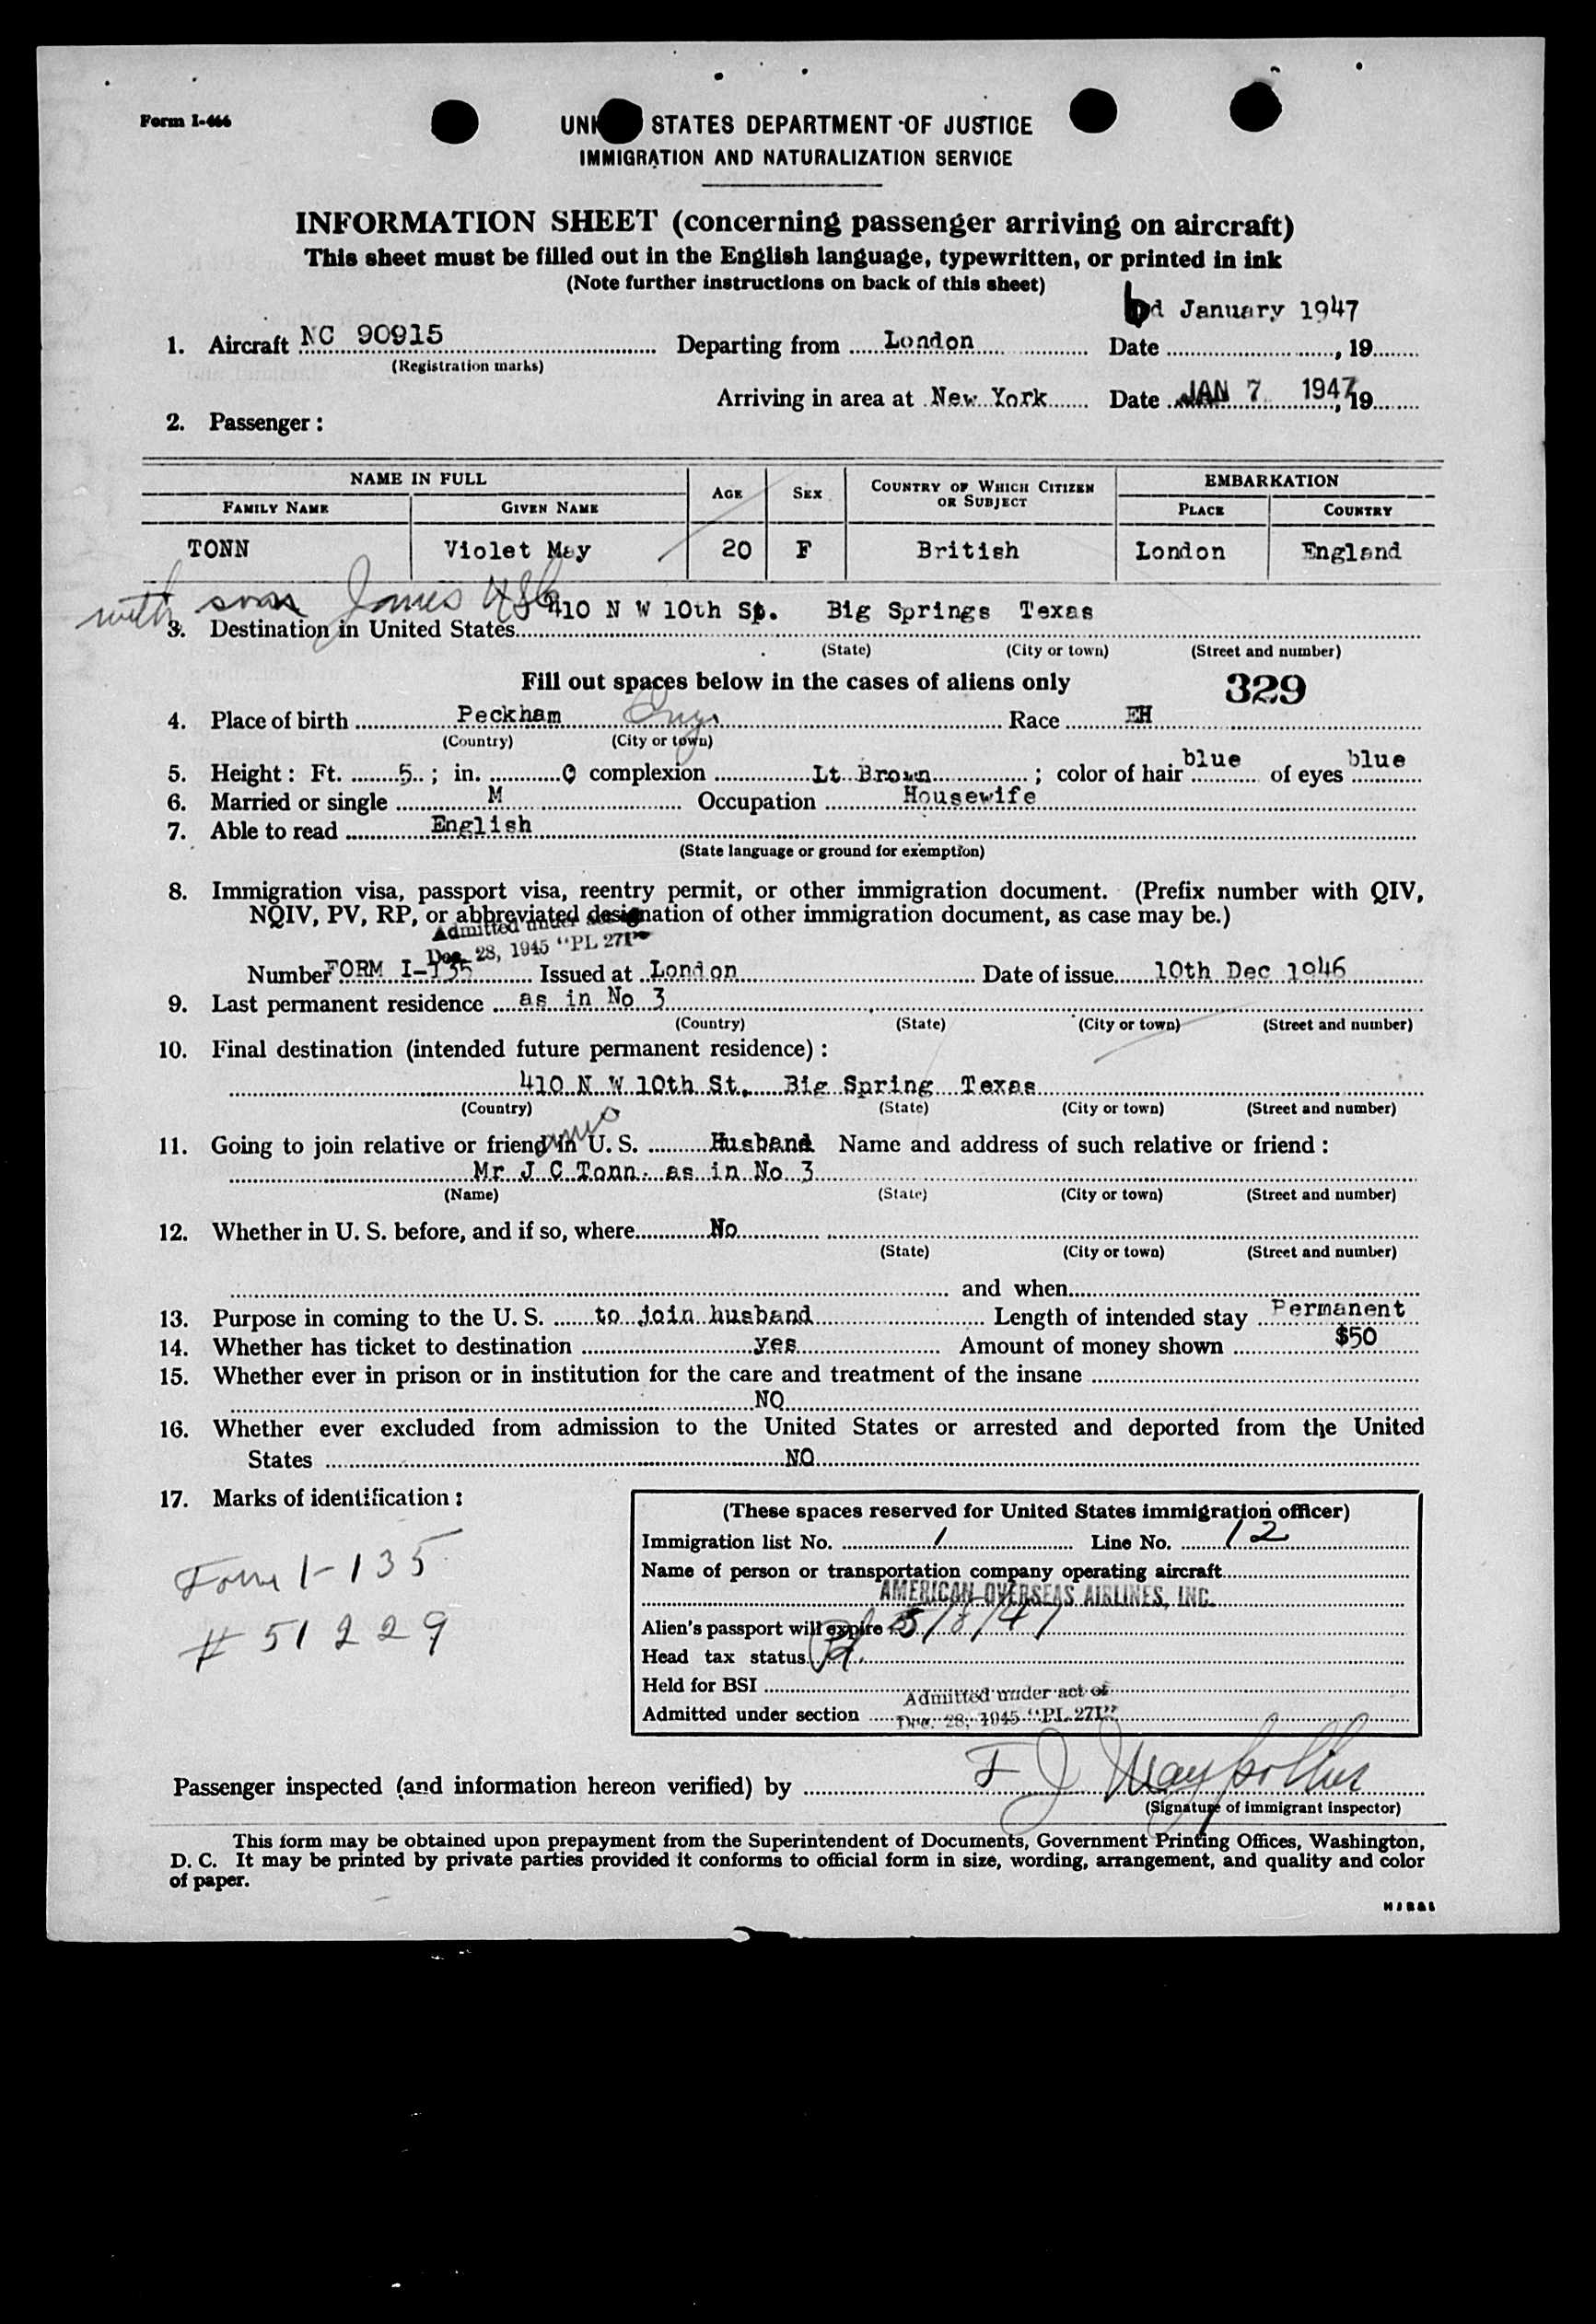 Form I-466
UNI STATES DEPARTMENT OF JUSTICE
IMMIGRATION AND NATURALIZATION SERVICE
INFORMATION SHEET (concerning passenger arriving on aircraft)
This sheet must be filled out in the English language, typewritten, or printed in ink
(Note further instructions on back of this sheet)
6d January 1947
1. Aircraft NC 90915 Departing from London Date , 19
(Registration marks)
Arriving in area at New York Date JAN 7 1947, 19
2. Passenger:
NAME IN FULL AGE SEX COUNTRY OF WHICH CITIZEN OR SUBJECT EMBARKATION
FAMILY NAME GIVEN NAME PLACE COUNTRY
TONN Violet May 20 F British London England
with son James
410 N W 10th St. Big Springs Texas
3. Destination in United States
(State) (City or town) (Street and number)
Fill out spaces below in the cases of aliens only 329
4. Place of birth Peckham Eng. Race EH
(Country) (City or town)
5. Height: Ft. 5 ; in. 0 complexion Lt Brown ; color of hair blue of eyes blue
6. Married or single M Occupation Housewife
7. Able to read English
(State language or ground for exemption)
8. Immigration visa, passport visa, reentry permit, or other immigration document. (Prefix number with QIV,
NQIV, PV, RP, or abbreviated designation of other immigration document, as case may be.)
Admitted under act of
Dec. 28, 1945 "PL 271"
Number FORM I-135 Issued at London Date of issue 10th Dec 1946
9. Last permanent residence as in No 3
(Country) (State) (City or town) (Street and number)
10. Final destination (intended future permanent residence):
410 N W 10th St. Big Spring Texas
(Country) (State) (City or town) (Street and number)
11. Going to join relative or friend in U. S. Husband Name and address of such relative or friend:
Mr J C Tonn as in No 3
(Name) (State) (City or town) (Street and number)
12. Whether in U. S. before, and if so, where No
(State) (City or town) (Street and number)
and when
13. Purpose in coming to the U. S. to join husband Length of intended stay Permanent
14. Whether has ticket to destination yes Amount of money shown $50
15. Whether ever in prison or in institution for the care and treatment of the insane
NO
16. Whether ever excluded from admission to the United States or arrested and deported from the United
States NO
17. Marks of identification:
Form I-135
# 51229
(These spaces reserved for United States immigration officer)
Immigration list No. 1 Line No. 12
Name of person or transportation company operating aircraft
AMERICAN OVERSEAS AIRLINES, INC.
Alien's passport will expire 5/8/47
Head tax status
Held for BSI
Admitted under section Admitted under act of
Dec. 28, 1945 "PL 271"
Passenger inspected (and information hereon verified) by F J
(Signature of immigrant inspector)
This form may be obtained upon prepayment from the Superintendent of Documents, Government Printing Offices, Washington,
D. C. It may be printed by private parties provided it conforms to official form in size, wording, arrangement, and quality and color
of paper.